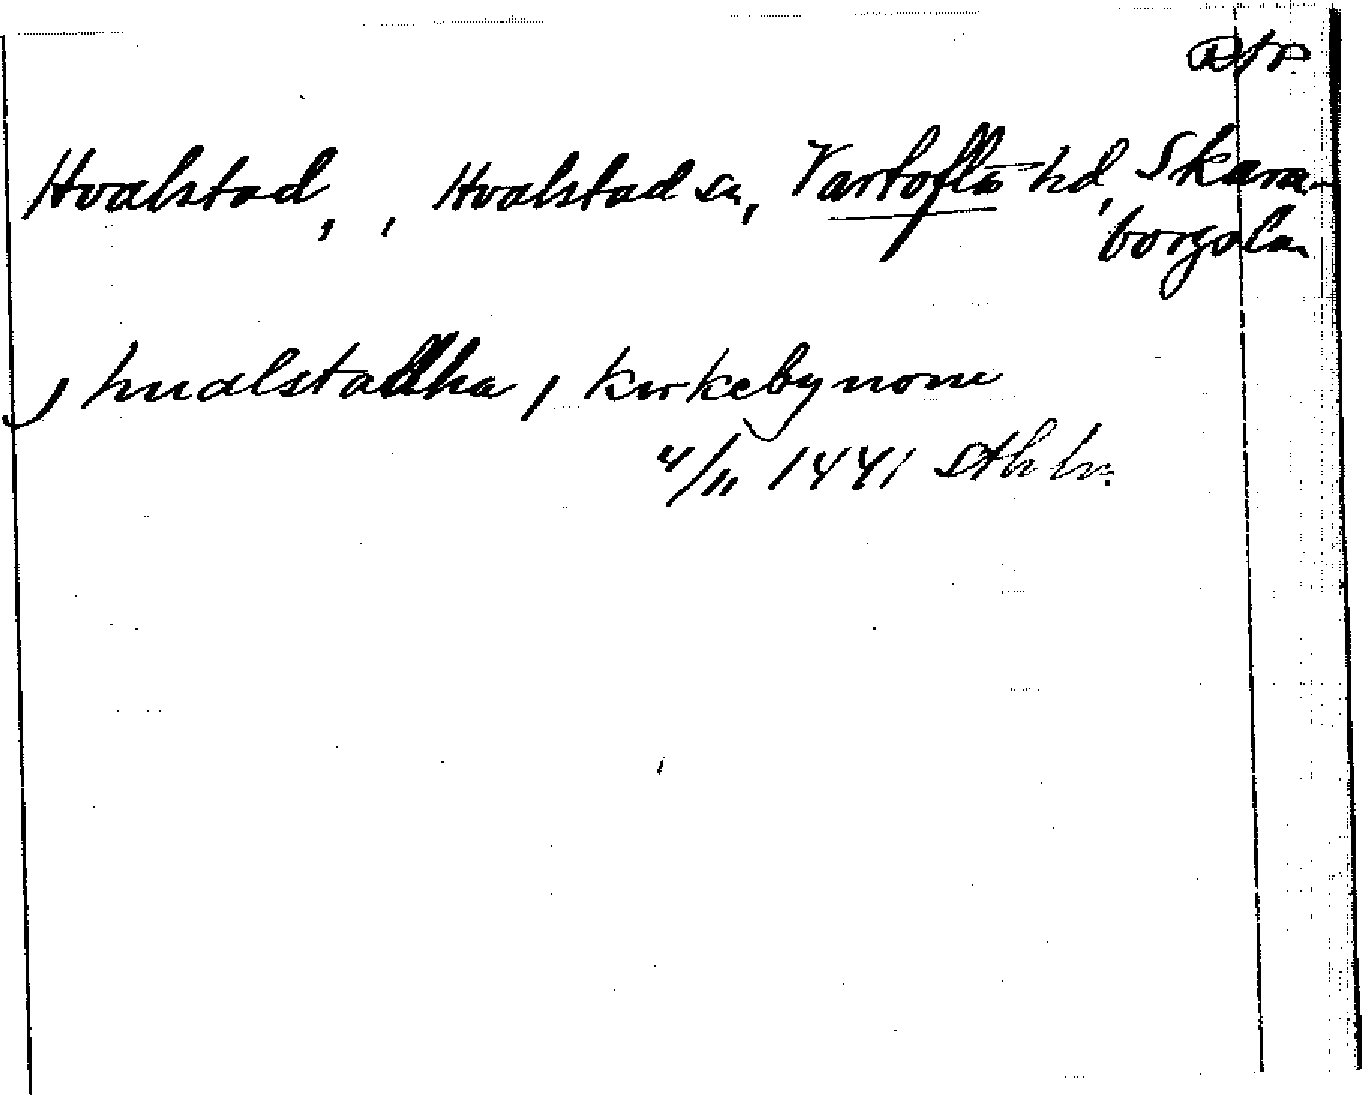 Hvalstad, , Hvalstad sn, Vartofta hd, Skara-
borgs län
j hualstadha, kirkebynom
4/11 1441 Sth br.